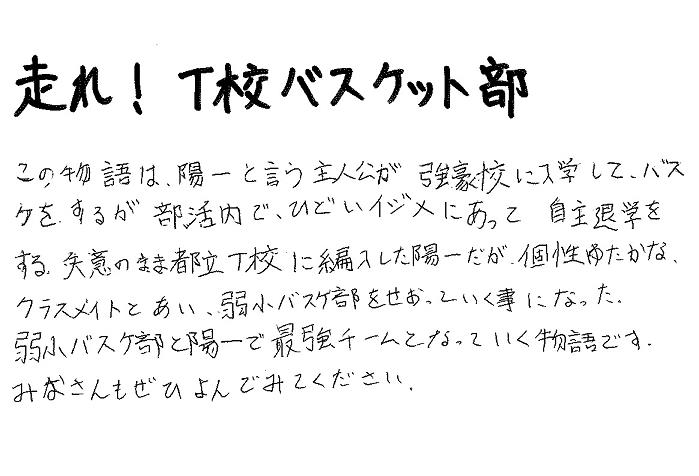 走れ！ T校バスケット部
この物語は、陽一と言う主人公が 強豪校に入学して、バス
ケを、するが 部活内で、ひどいイジメにあって 自主退学を
する。失意のまま都立T校に編入した陽一だが、個性ゆたかな、
クラスメイトとあい、弱小バスケ部をせおっていく事になった。
弱小バスケ部と陽一で最強チームとなっていく物語です。
みなさんもぜひよんでみてください。